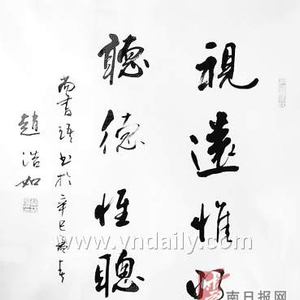 視遠惟明
聽德惟聰
尚書語 書於辛巳
趙浩如
www.yndaily.com
南日报网